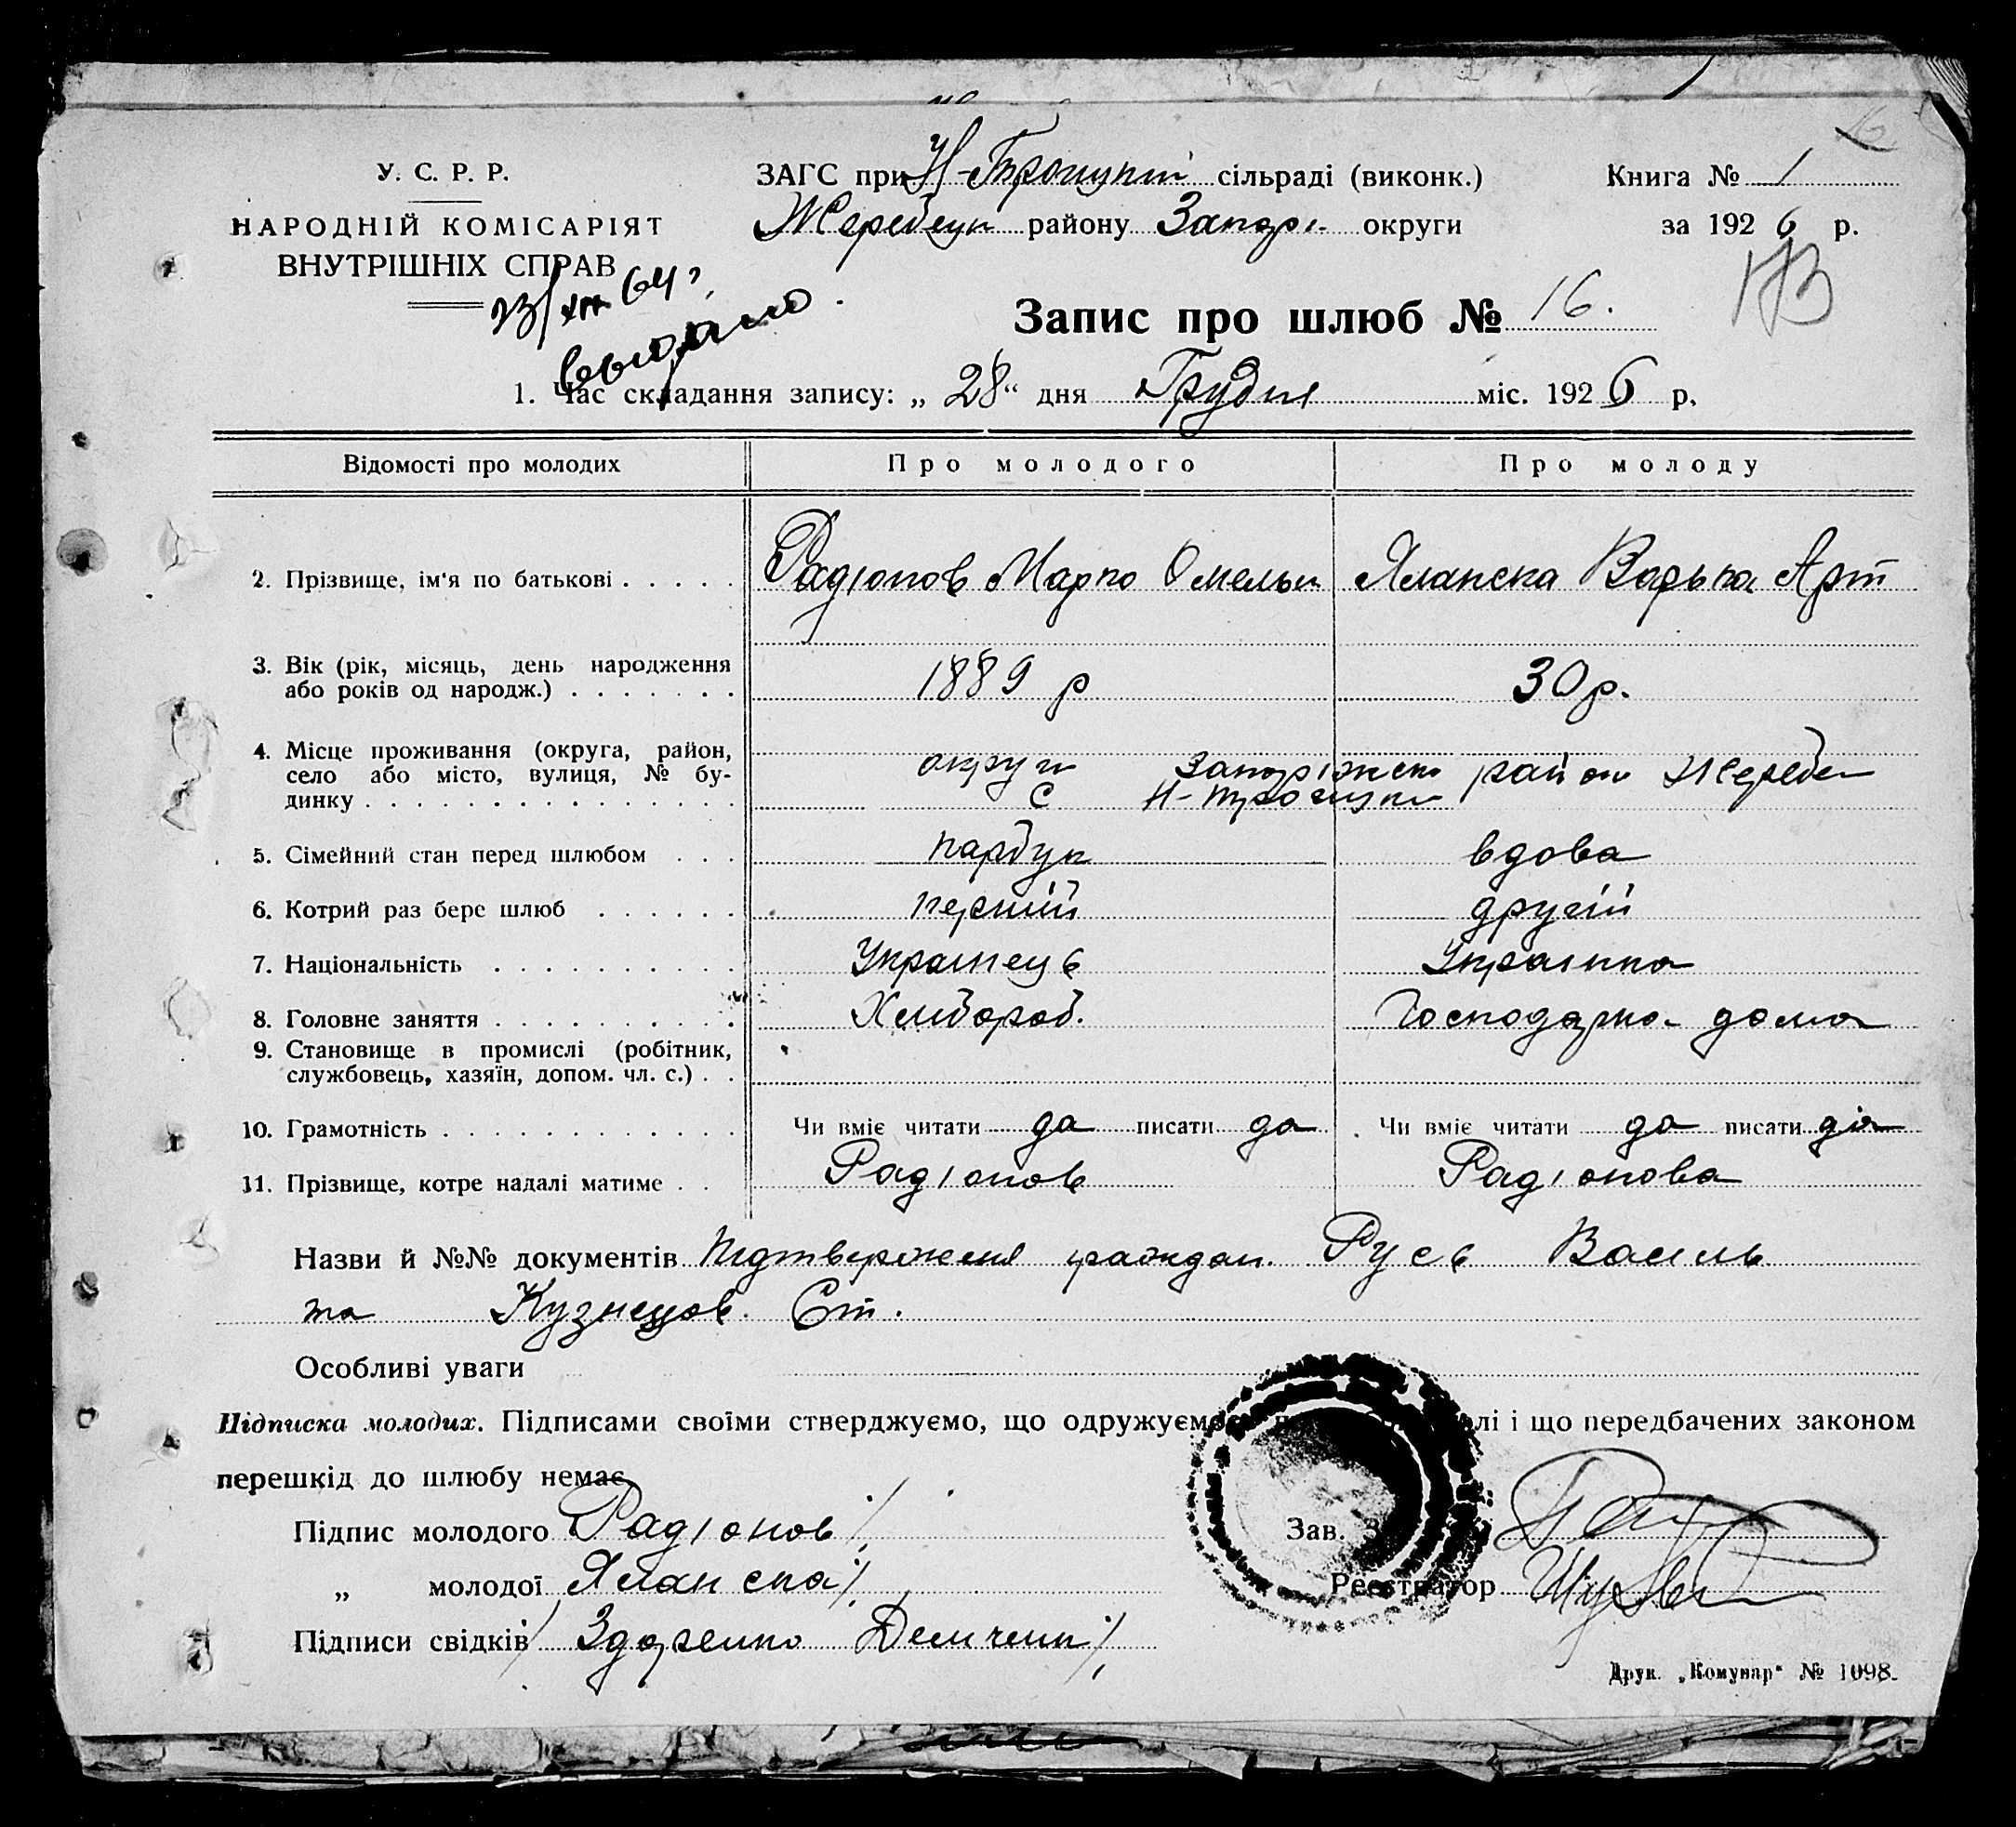 У. С. Р. Р.
НАРОДНІЙ КОМІСАРІЯТ
ВНУТРІШНІХ СПРАВ
23/XII 64 г.
выдано.
ЗАГС при Н-Трочункій сільраді (виконк.)
Жеребецьк району Запорі округи
Книга № 1
за 1926 р.
НВ
Запис про шлюб № 16.
1. Час складання запису: „ 28 “ дня Грудня міс. 1926 р.
Відомості про молодих Про молодого Про молоду
2. Прізвище, ім'я по батькові . . . . . Радіонов Марко Омельк Яланска Варька Арт
3. Вік (рік, місяць, день народження
або років од народж.) . . . . . . . 1889 р 30 р.
4. Місце проживання (округа, район,
село або місто, вулиця, № бу-
динку . . . . . . . . . . . . . . . округи Запоріжско район Жеребец
С
5. Сімейний стан перед шлюбом . . . парбук вдова
6. Котрий раз бере шлюб . . . . . . перший другій
7. Національність . . . . . . . . . . Українець Українка
8. Головне заняття . . . . . . . . . . Хлибороб. Господарка дома
9. Становище в промислі (робітник,
службовець, хазяїн, допом. чл. с.) . .
10. Грамотність . . . . . . . . . . . . Чи вміє читати да писати да Чи вміє читати да писати да
11. Прізвище, котре надалі матиме . . Радіонов Радіонова
Назви й №№ документів Підтверженя граждан. Русь Василь
та Кузнецов. Ст.
Особливі уваги
Підписка молодих. Підписами своїми стверджуємо, що одружуємо лі і що передбачених законом
перешкід до шлюбу немає
Підпис молодого Радіонов/.
„ молодої Яланска/.
Підписи свідків / Здоренко Демченк/.
Зав.
Реєстратор
Друк. „Комунар“ № 1098.